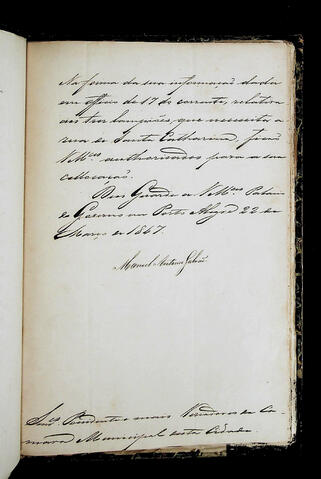 Na forma da sua informação dada
em officio de 17 do corrente, relativa
aos tres lampiões, que necessita a
rua de Santa Catharina, ficão
V.Mces authorisados para a sua
collocação.
Deos Guarde a V.Mces Palacio
do Governo em Porto Alegre 22 de
Março de 1847.
Manoel Antonio Galvão
Snrs. Presidente e mais Vereadores da Ca-
mara Municipal desta Cidade.